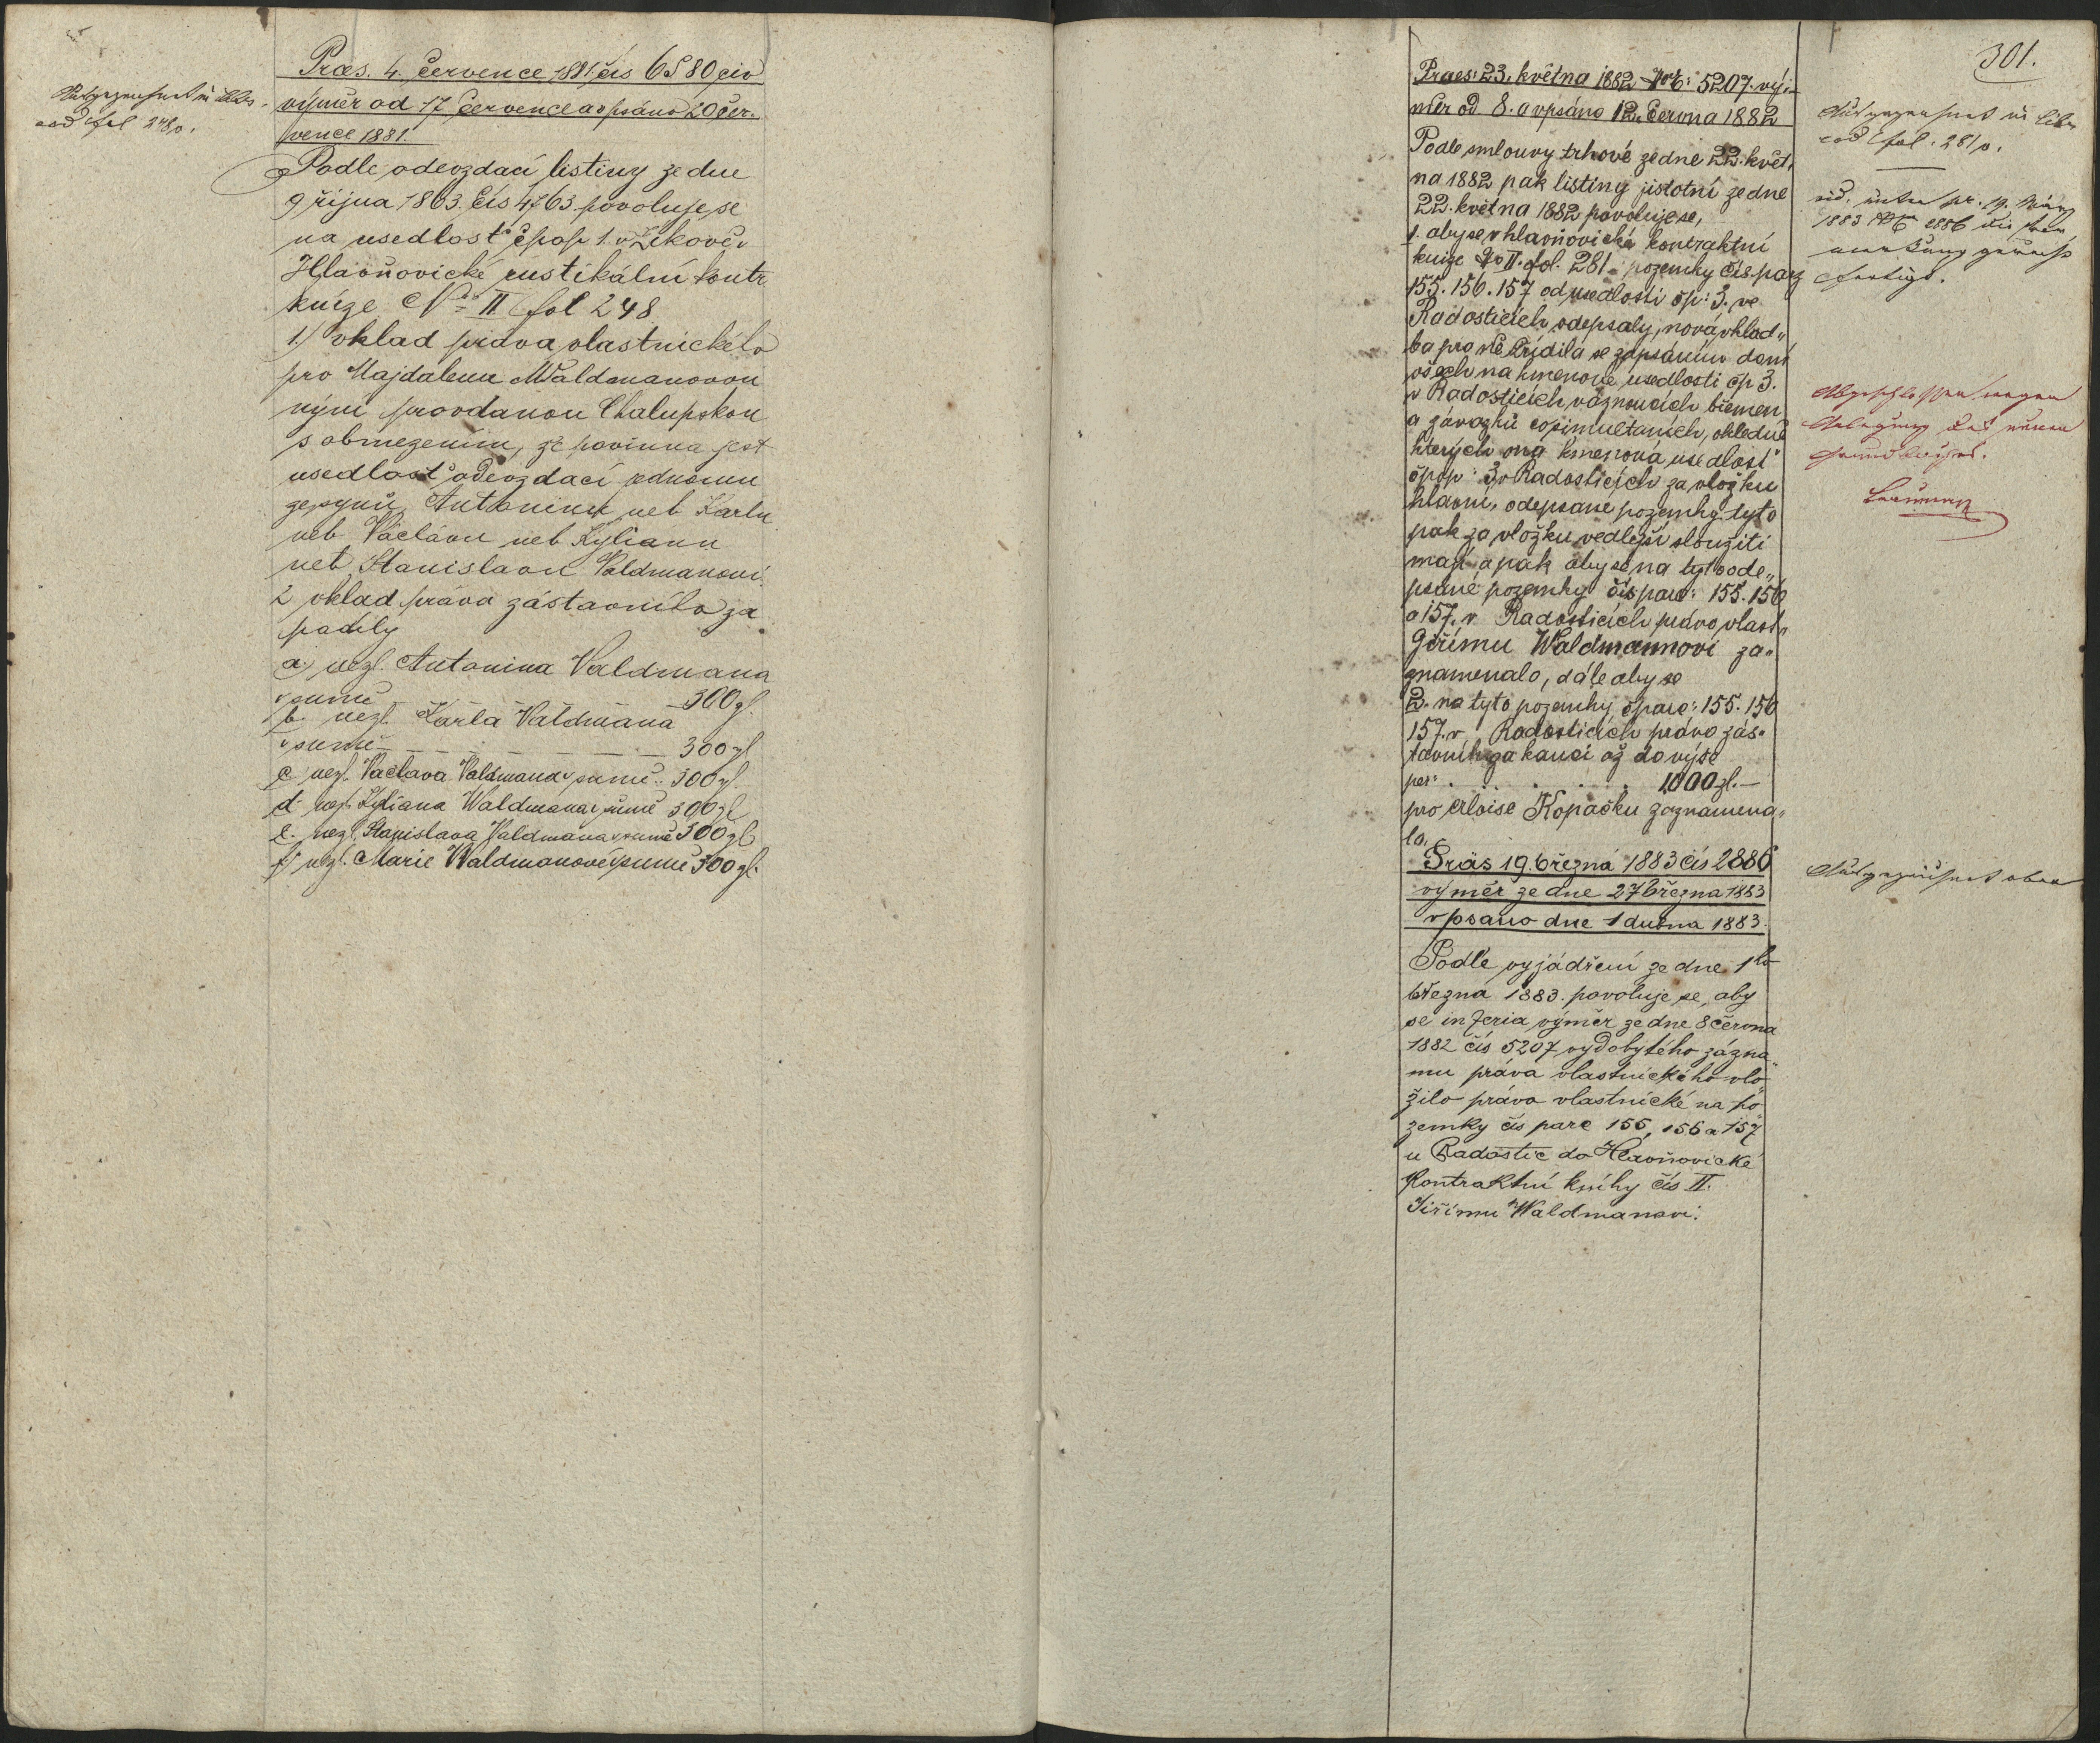 Praes. 4. července 1881 čís 6580 civ
výměr od 17 července a vpsáno 20 čer-
vence 1881.
fol 248 p.
Podle odevzdací listiny ze dne
9 října 1863. čís 4763 povoluje se
na usedlosť čpop 1. v Žikově v
Hlavňovické rustikální kontr
knize N= II fol 248
1.) vklad práva vlastnického
pro Majdalenu Waldmanovou
nyní provdanou Chalupskou
s obmezením, že povinna jest
usedlosť odevzdací jednomu
ze synů Antonínu neb Karlu
neb Václavu neb Kylianu
neb Stanislavu Valdmanovi.
2 vklad práva zástavního za
podíly
a.) nezl. Antonína Valdmana
v sumě 300 zl.
b. nezl. Karla Valdmana
v sumě 300 zl
c nezl. Václava Valdmana v sumě 300 zl.
d. nezl. Kyliana Waldmana v sumě 300 zl
e. nezl. Stanislava Valdmana v sumě 300 zl
f. nezl. Marie Waldmanové v sumě 300 zl.
301.
Praes: 23. května 1882 5207. vý-
měr od 8. a vpsáno 12. června 1882
Podle smlouvy trhové ze dne 22. květ-
na 1882 pak listiny jistotní ze dne
22. května 1882 povoluje se,
1. aby se v hlavňovické kontraktní
knize No II. fol. 281 pozemky čís. parz
155. 156. 157 od usedlosti čp: 3. ve
Radosticích odepsaly, nová vklad-
ba pro ně zřídila se zapsáním
všech na kmenové usedlosti čp 3.
v Radosticích váznoucích břemen
a závazků co simultaních, ohledně
kterých ona kmenová usedlosť
čpop: 3 v Radosticích za vložku
hlavní, odepsané pozemky tyto
pak za vložku vedlejší sloužiti
mají a pak aby se na tyto ode-
psané pozemky čís parc: 155. 156
a 157. v Radosticích právo vlast.
Jiřímu Waldmannovi za-
znamenalo, dále aby se
2. na tyto pozemky čparc: 155. 156
157. v Radosticích právo zás-
tavní za kauci až do výše
per: 1000 zl.—
pro Aloise Kopačku zaznamena-
lo.
Präs 19. března 1883 čís 2886
výměr ze dne 27 března 1883
vpsano dne 1 dubna 1883.
Podle vyjádření ze dne 1ho
března 1883. povoluje se, aby
se výměr ze dne 8 června
1882 čís 5207 vydobytého zázna-
mu práva vlastnického vlo-
žilo právo vlastnické na po-
zemky čís parc 155, 156 a 157
u Radostic do Hlavňovické
Kontraktní knihy čís II.
Jiřímu Waldmanovi.
fol. 281 p.
vid. unter pr. 19. März
1883 2886